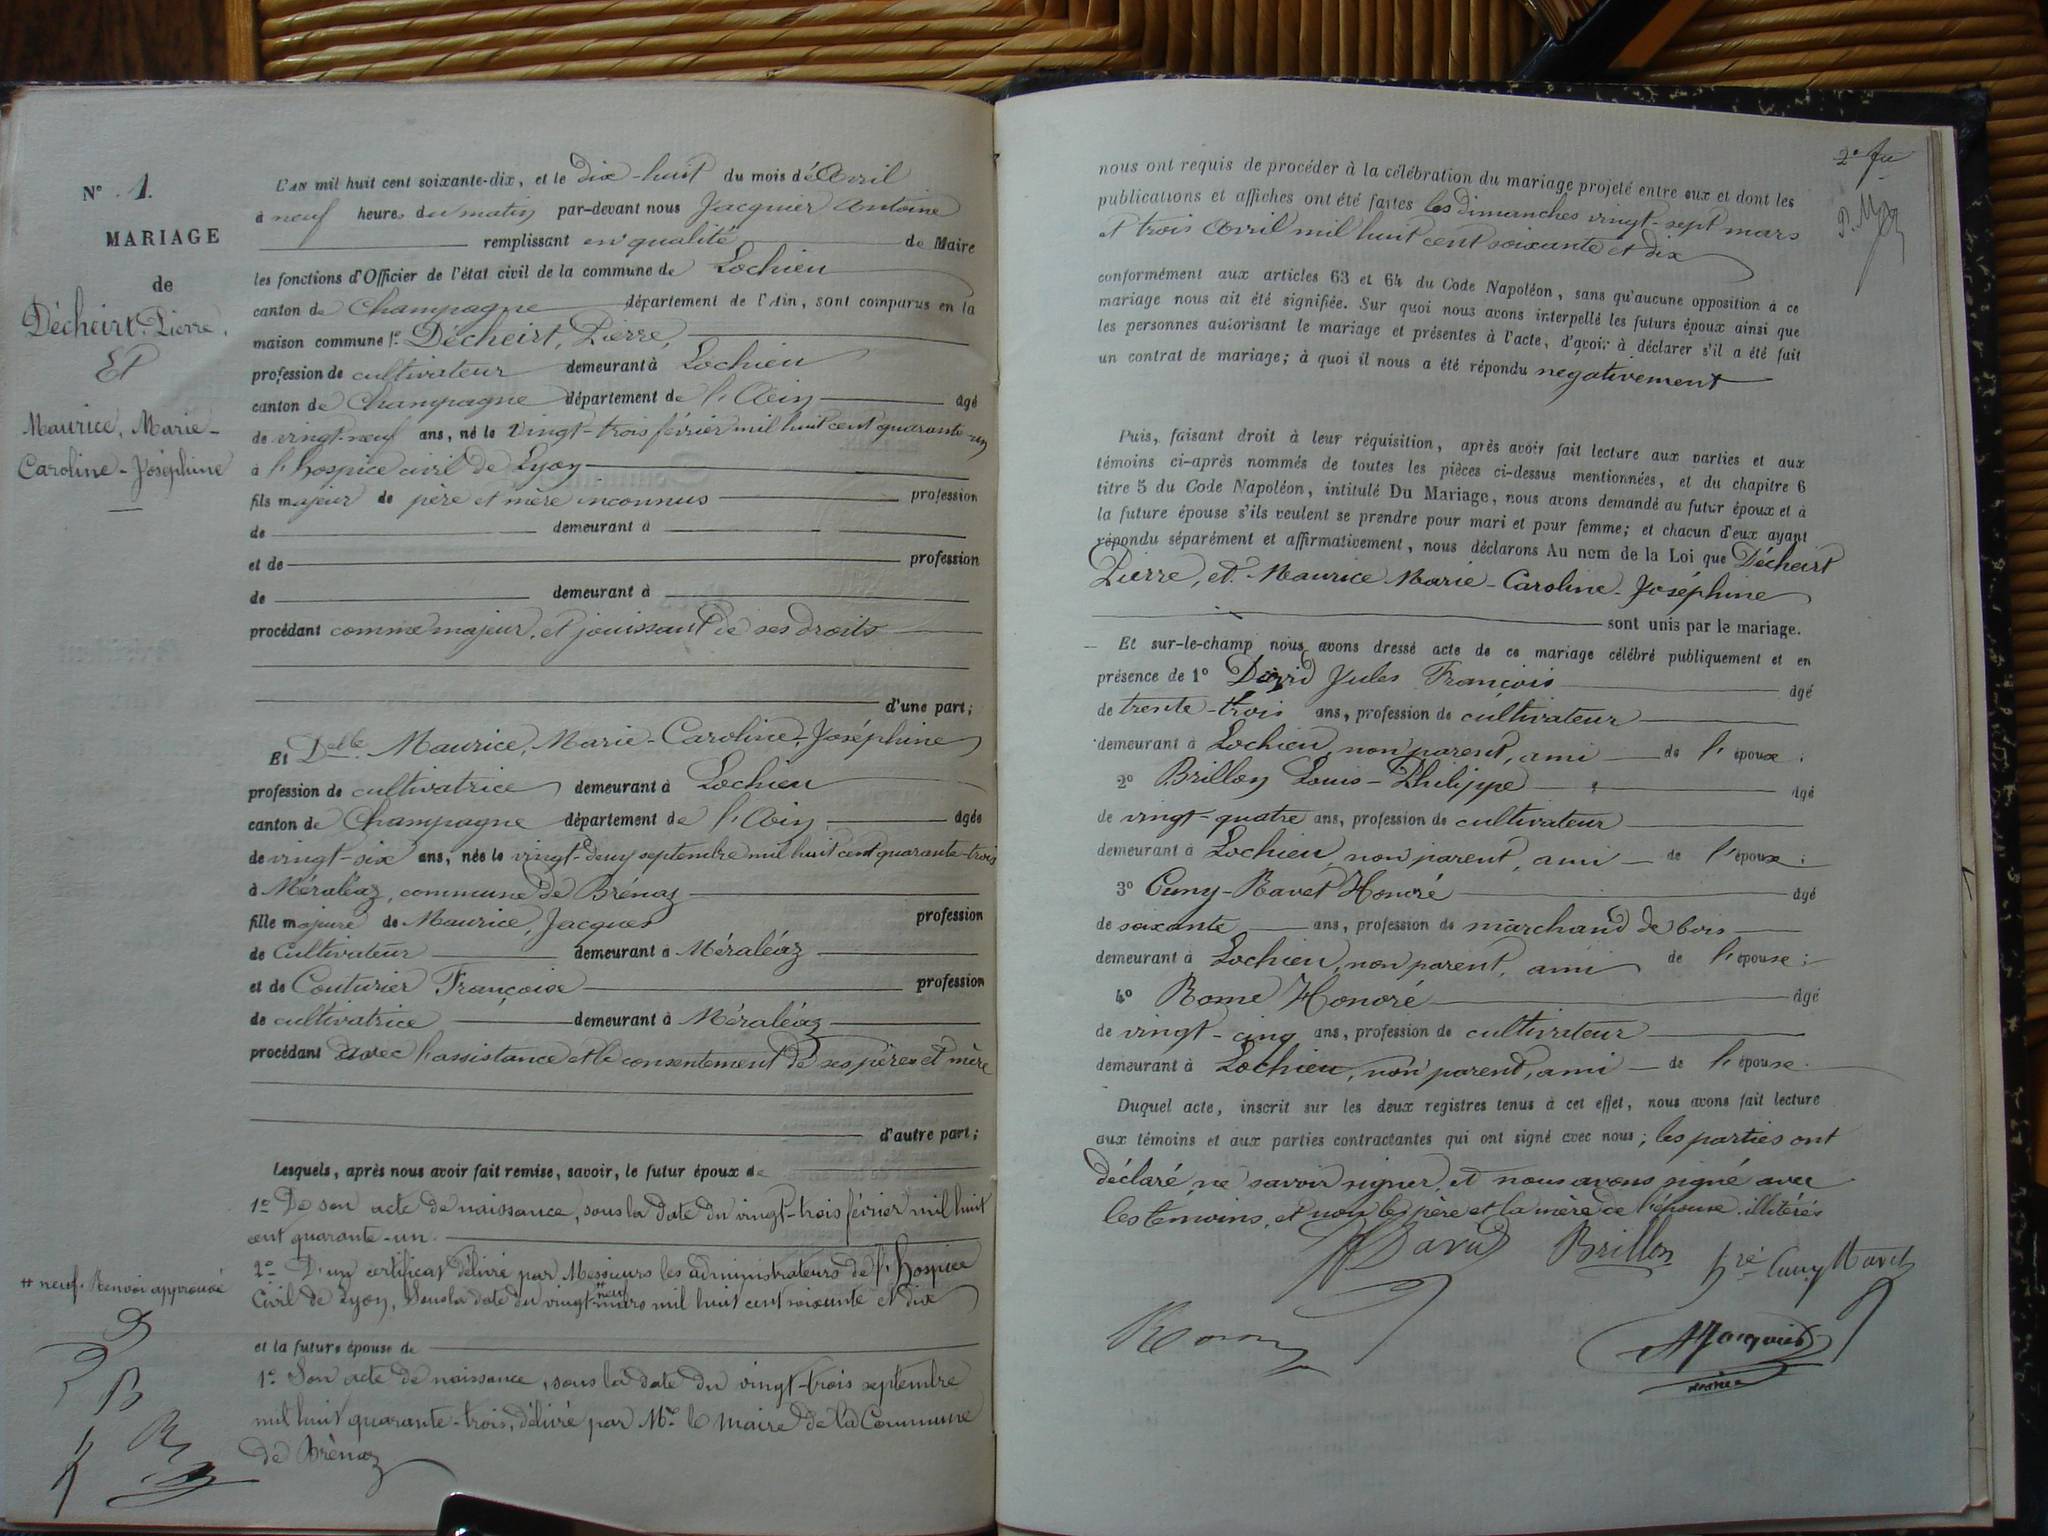 N° 1.
MARIAGE
de
Décheirt, Pierre,
Et
Maurice, Marie-
Caroline-Joséphine
L'AN mil huit cent soixante-dix, et le dix-huit du mois d'Avril
à neuf heures du matin par-devant nous Jacquier Antoine
remplissant en qualité de Maire
les fonctions d'Officier de l'état civil de la commune de Lochieu
canton de Champagne département de l'Ain, sont comparus en la
maison commune 1° Décheirt, Pierre,
profession de cultivateur demeurant à Lochieu
canton de Champagne département de l'Ain âgé
de vingt-neuf ans, né le vingt-trois février mil huit cent quarante-un
à l'hospice civil de Lyon
fils majeur de père et mère inconnus profession
de demeurant à
et de profession
de demeurant à
procédant comme majeur, et jouissant de ses droits
d'une part;
Et Delle Maurice, Marie-Caroline-Joséphine
profession de cultivatrice demeurant à Lochieu
canton de Champagne département de l'Ain âgée
de vingt-six ans, née le vingt-deux septembre mil huit cent quarante-trois
à Méraléaz, commune de Brénaz
fille majeure de Maurice, Jacques profession
de Cultivateur demeurant à Méraléaz
et de Couturier Françoise profession
de cultivatrice demeurant à Méraléaz
procédant avec l'assistance et le consentement de ses père et mère
d'autre part;
Lesquels, après nous avoir fait remise, savoir, le futur époux de
1° De son acte de naissance, sous la date du vingt-trois février mil huit
cent quarante-un.
2° D'un certificat délivré par Messieurs les administrateurs de l'hospice
Civil de Lyon, sous la date du vingt-# neuf mars mil huit cent soixante et dix
# neuf. Renvoi approuvé
et la future épouse de
1° Son acte de naissance, sous la date du vingt-trois septembre
mil huit quarante-trois, délivré par Mr le maire de la Commune
de Brénaz
2e fu
nous ont requis de procéder à la célébration du mariage projeté entre eux et dont les
publications et affiches ont été faites les dimanches vingt-sept mars
et trois Avril mil huit cent soixante et dix
conformément aux articles 63 et 64 du Code Napoléon, sans qu'aucune opposition à ce
mariage nous ait été signifiée. Sur quoi nous avons interpellé les futurs époux ainsi que
les personnes autorisant le mariage et présentes à l'acte, d'avoir à déclarer s'il a été fait
un contrat de mariage; à quoi il nous a été répondu négativement
Puis, faisant droit à leur réquisition, après avoir fait lecture aux parties et aux
témoins ci-après nommés de toutes les pièces ci-dessus mentionnées, et du chapitre 6
titre 5 du Code Napoléon, intitulé Du Mariage, nous avons demandé au futur époux et à
la future épouse s'ils veulent se prendre pour mari et pour femme; et chacun d'eux ayant
répondu séparément et affirmativement, nous déclarons Au nom de la Loi que Décheirt
Pierre, et Maurice Marie-Caroline-Joséphine
sont unis par le mariage.
Et sur-le-champ nous avons dressé acte de ce mariage célébré publiquement et en
présence de 1° David Jules François âgé
de trente-trois ans, profession de cultivateur
demeurant à Lochieu, non parent, ami de l'épouse;
2° Brillon Louis-Philippe âgé
de vingt-quatre ans, profession de cultivateur
demeurant à Lochieu, non parent, ami de l'épouse;
3° Cuny-Ravet Honoré âgé
de soixante ans, profession de marchand de bois
demeurant à Lochieu, non parent, ami de l'épouse;
4° Rome Honoré âgé
de vingt-cinq ans, profession de cultivateur
demeurant à Lochieu, non parent, ami de l'épouse.
Duquel acte, inscrit sur les deux registres tenus à cet effet, nous avons fait lecture
aux témoins et aux parties contractantes qui ont signé avec nous; les parties ont
déclaré ne savoir signer, et nous avons signé avec
les témoins, et non les père et la mère de l'épouse illitérés
David Brillon hré Cuny Ravet
Rome AJacquier
maire